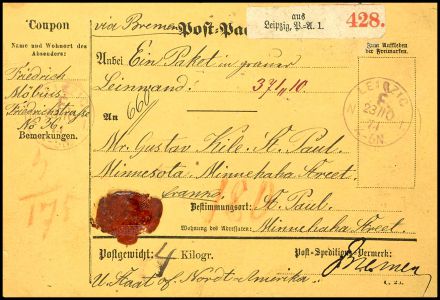 Coupon
Name und Wohnort des
Absenders:
Friedrich
Möbius
Friedrichstraße
No 36.
Bemerkungen.
via Bremen
Post-Pac
aus
Leipzig, P.-A. 1.
428.
Anbei Ein Paket in grauer
Leinwand.
371,10.
An
660
Mr. Gustav Kile. St. Paul.
Minnesota. Minnehaha Street.
Bestimmungsort: St. Paul.
Wohnung des Adressaten: Minnehaha Street.
Postgewicht: 4 Kilogr.
Post-Speditions-Vermerk:
Bremen
U. Staat of Nordt-Amerika.
C. 23.
Zum Aufkleben
der Freimarken.
LEIPZIG
23/10